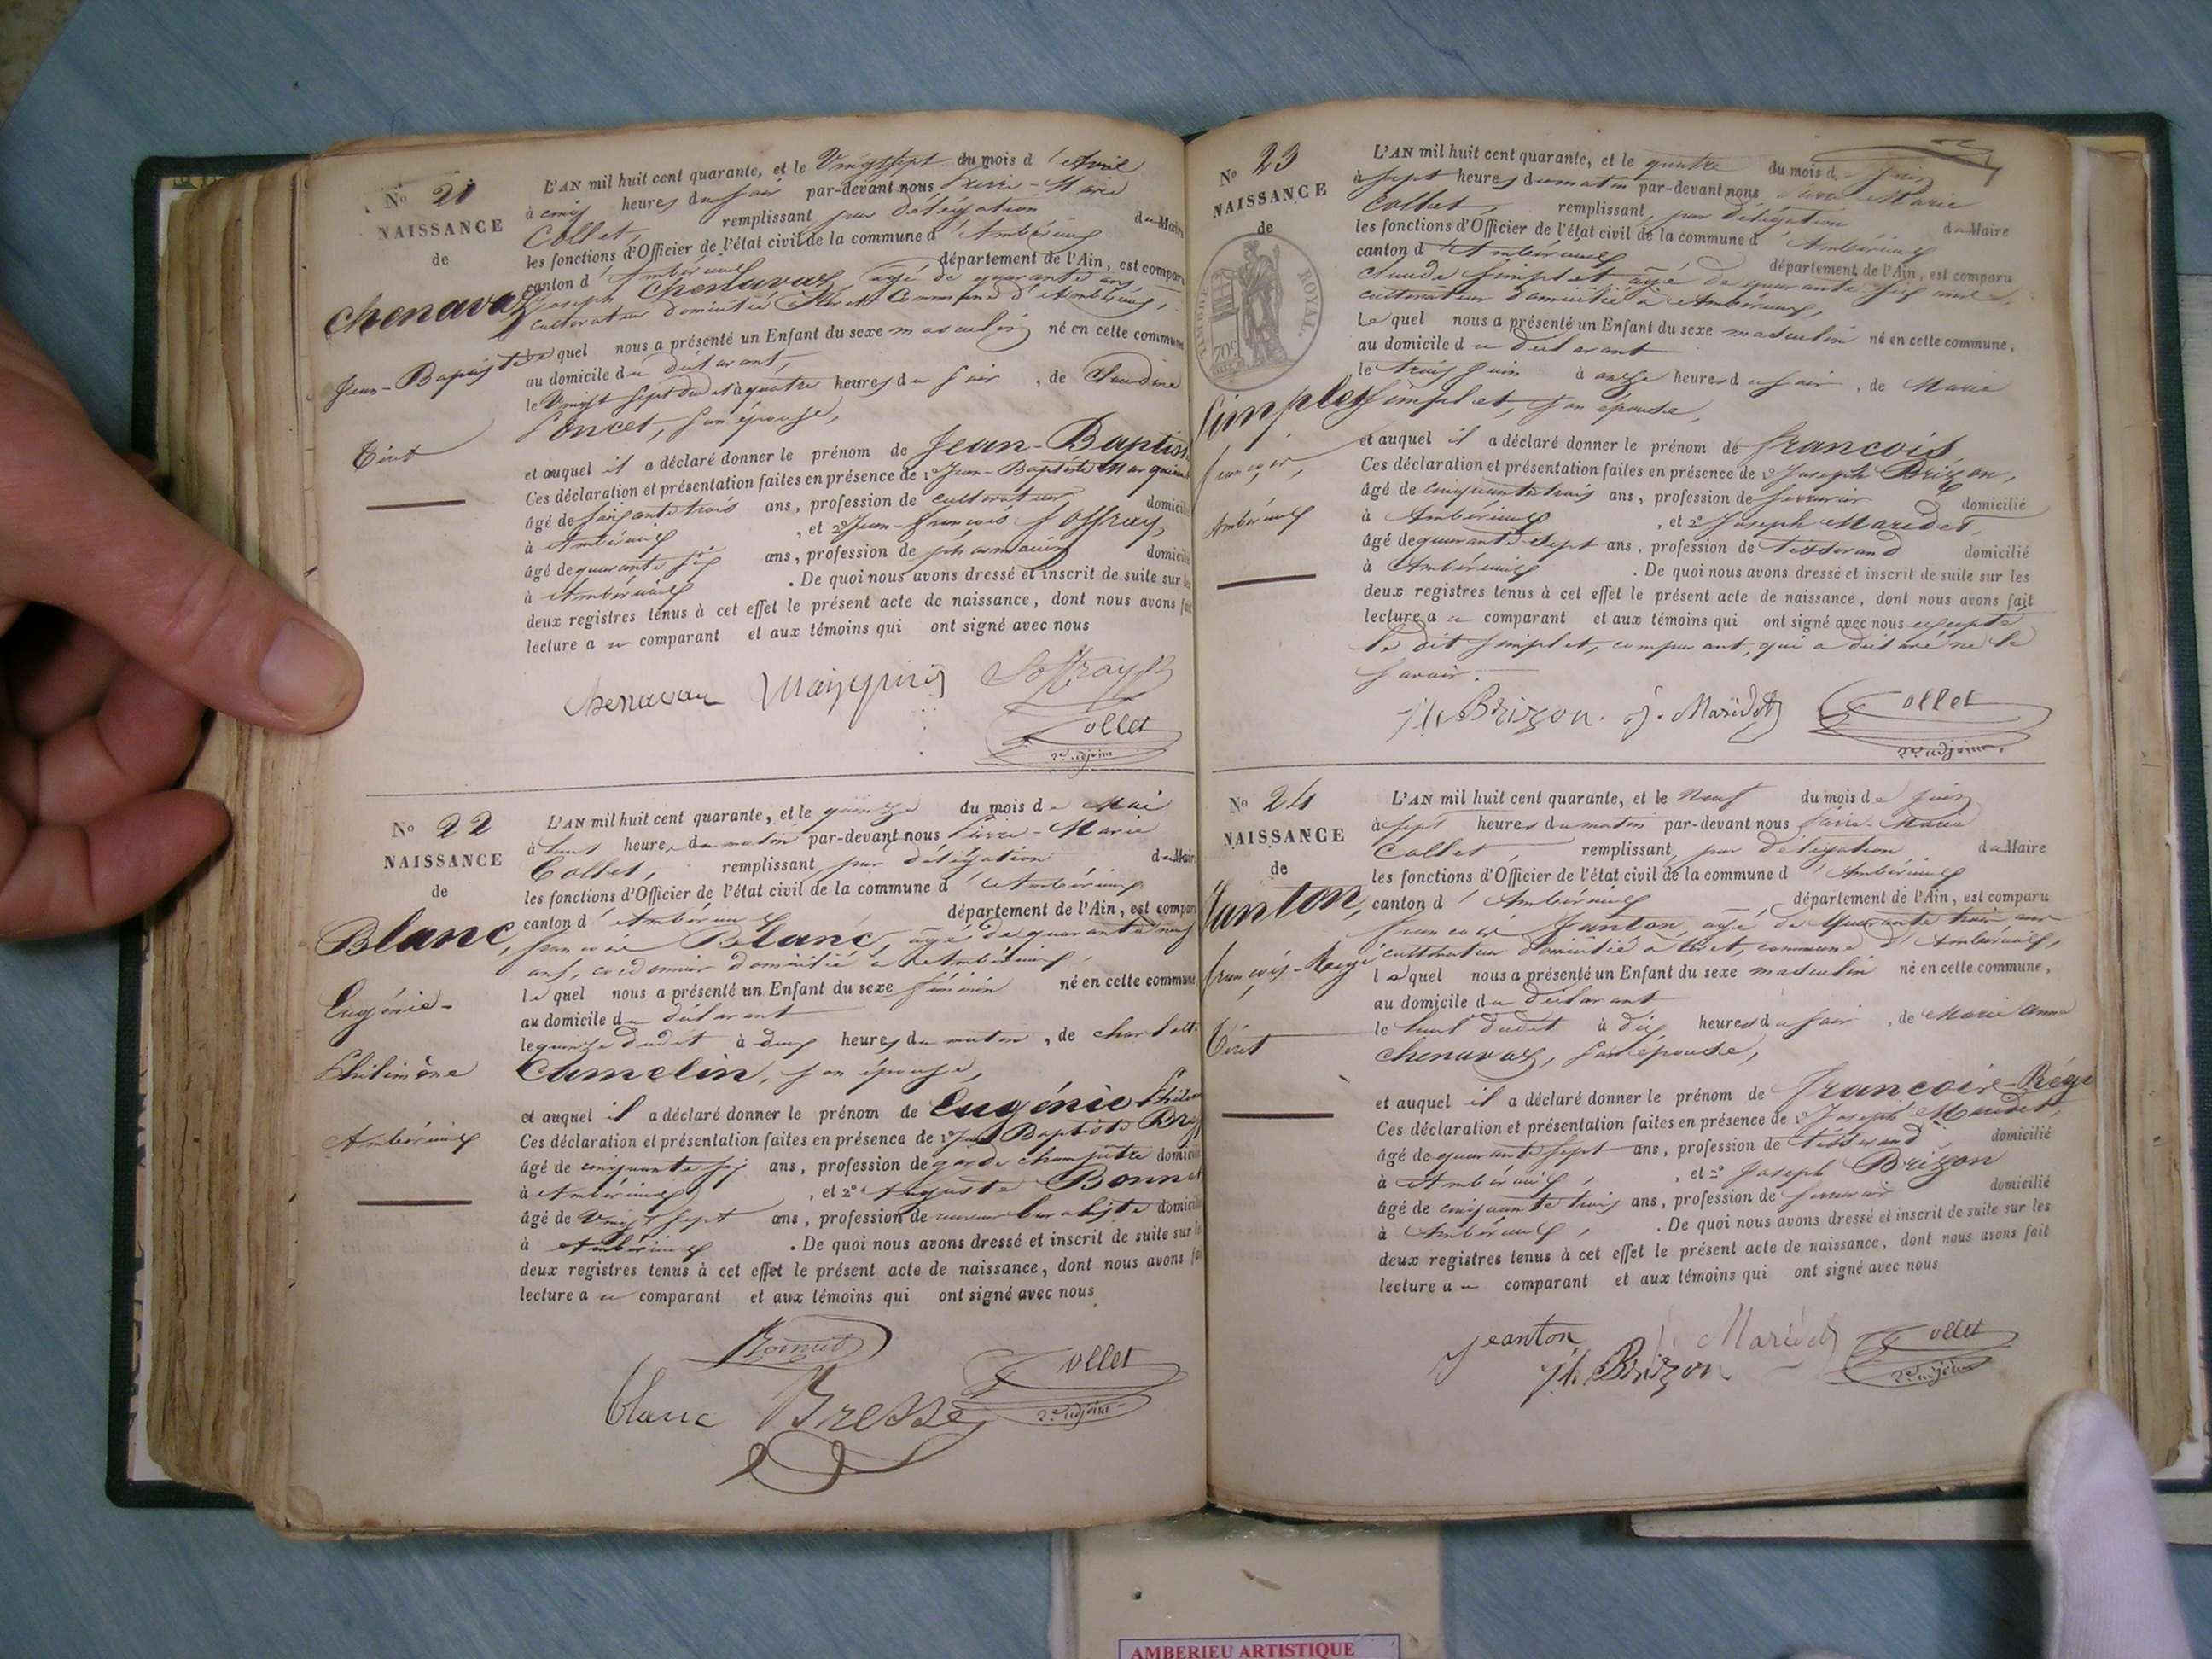 N° 21
NAISSANCE
de
Chenavaz
Jean-Baptiste
Tiret
L'AN mil huit cent quarante, et le Vingt sept du mois d'Avril
à cinq heures du soir par-devant nous Pierre-Marie
Collet, remplissant, par délégation du Maire
les fonctions d'Officier de l'état civil de la commune d'Ambérieux
canton d'Ambérieux département de l'Ain, est comparu
Joseph Chenavaz, agé de quarante ans,
cultivateur domicilié à Tiret Commune d'Ambérieux,
Lequel nous a présenté un Enfant du sexe masculin né en cette commune
au domicile du déclarant,
le Vingt sept dud. et à quatre heures du soir, de Claudine
Poncet, son épouse,
et auquel il a déclaré donner le prénom de Jean-Baptiste
Ces déclaration et présentation faites en présence de 1° Jean-Baptiste
âgé de soixante trois ans, profession de cultivateur domicilié
à Ambérieux, et 2° Jean-François Soffray,
âgé de quarante six ans, profession de pharmacien domicilié
à Ambérieux. De quoi nous avons dressé et inscrit de suite sur les
deux registres tenus à cet effet le présent acte de naissance, dont nous avons fait
lecture au comparant et aux témoins qui ont signé avec nous
Chenavaz Soffray
Collet
2e adjoint
N° 22
NAISSANCE
de
Blanc,
Eugénie-
Philimène
Ambérieux
L'AN mil huit cent quarante, et le quinze du mois de Mai
à huit heures du matin par-devant nous Pierre-Marie
Collet, remplissant, par délégation du Maire
les fonctions d'Officier de l'état civil de la commune d'Ambérieux
canton d'Ambérieux département de l'Ain, est comparu
François Blanc, agé de quarante neuf
ans, cordonnier domicilié à Ambérieux,
Lequel nous a présenté un Enfant du sexe féminin né en cette commune
au domicile du déclarant
le quinze dudit à deux heures du matin, de Charlotte
Camelin, son épouse,
et auquel il a déclaré donner le prénom de Eugénie
Ces déclaration et présentation faites en présence de 1° Jean Baptiste
âgé de cinquante six ans, profession de garde champêtre domicilié
à Ambérieux, et 2° Auguste Bonnet
âgé de Vingt sept ans, profession de receveur buraliste domicilié
à Ambérieux. De quoi nous avons dressé et inscrit de suite sur les
deux registres tenus à cet effet le présent acte de naissance, dont nous avons fait
lecture au comparant et aux témoins qui ont signé avec nous
Bonnet
blanc Bresse Collet
2e adjoint
N° 23
NAISSANCE
de
TIMBRE ROYAL.
70c
Simplet
François,
Ambérieux
L'AN mil huit cent quarante, et le quatre du mois de Juin
à sept heures du matin par-devant nous Pierre Marie
Collet, remplissant, par délégation du Maire
les fonctions d'Officier de l'état civil de la commune d'Ambérieux
canton d'Ambérieux département de l'Ain, est comparu
Claude Simplet agé de quarante six ans,
cultivateur domicilié à Ambérieux,
Lequel nous a présenté un Enfant du sexe masculin né en cette commune,
au domicile du déclarant
le trois Juin à onze heures du soir, de Marie
Simplet, son épouse,
et auquel il a déclaré donner le prénom de François
Ces déclaration et présentation faites en présence de 1° Joseph Brizon,
âgé de cinquante trois ans, profession de serrurier domicilié
à Ambérieux, et 2° Joseph Maridet,
âgé de quarante-sept ans, profession de tisserand domicilié
à Ambérieux. De quoi nous avons dressé et inscrit de suite sur les
deux registres tenus à cet effet le présent acte de naissance, dont nous avons fait
lecture au comparant et aux témoins qui ont signé avec nous excepté
le dit Simplet, comparant, qui a déclaré ne le
savoir.
Brizon. J. Maridet Collet
2e adjoint
N° 24
NAISSANCE
de
Janton,
François-Régi
Tiret
L'AN mil huit cent quarante, et le Neuf du mois de Juin
à sept heures du matin par-devant nous Pierre-Marie
Collet, remplissant, par délégation du Maire
les fonctions d'Officier de l'état civil de la commune d'Ambérieux
canton d'Ambérieux département de l'Ain, est comparu
François Janton, agé de Quarante trois ans
cultivateur domicilié à Tiret, commune d'Ambérieux,
lequel nous a présenté un Enfant du sexe masculin né en cette commune,
au domicile du déclarant
le huit dudit à dix heures du soir, de Marie Anne
Chenavaz, son épouse,
et auquel il a déclaré donner le prénom de François-Régi
Ces déclaration et présentation faites en présence de 1° Joseph Maridet,
âgé de quarante sept ans, profession de tisserand, domicilié
à Ambérieux, et 2° Joseph Brizon
âgé de cinquante trois ans, profession de serrurier domicilié
à Ambérieux,. De quoi nous avons dressé et inscrit de suite sur les
deux registres tenus à cet effet le présent acte de naissance, dont nous avons fait
lecture au comparant et aux témoins qui ont signé avec nous
Jeanton J. Maridet Collet
Brizon 2e adjoint
AMBERIEU ARTISTIQUE